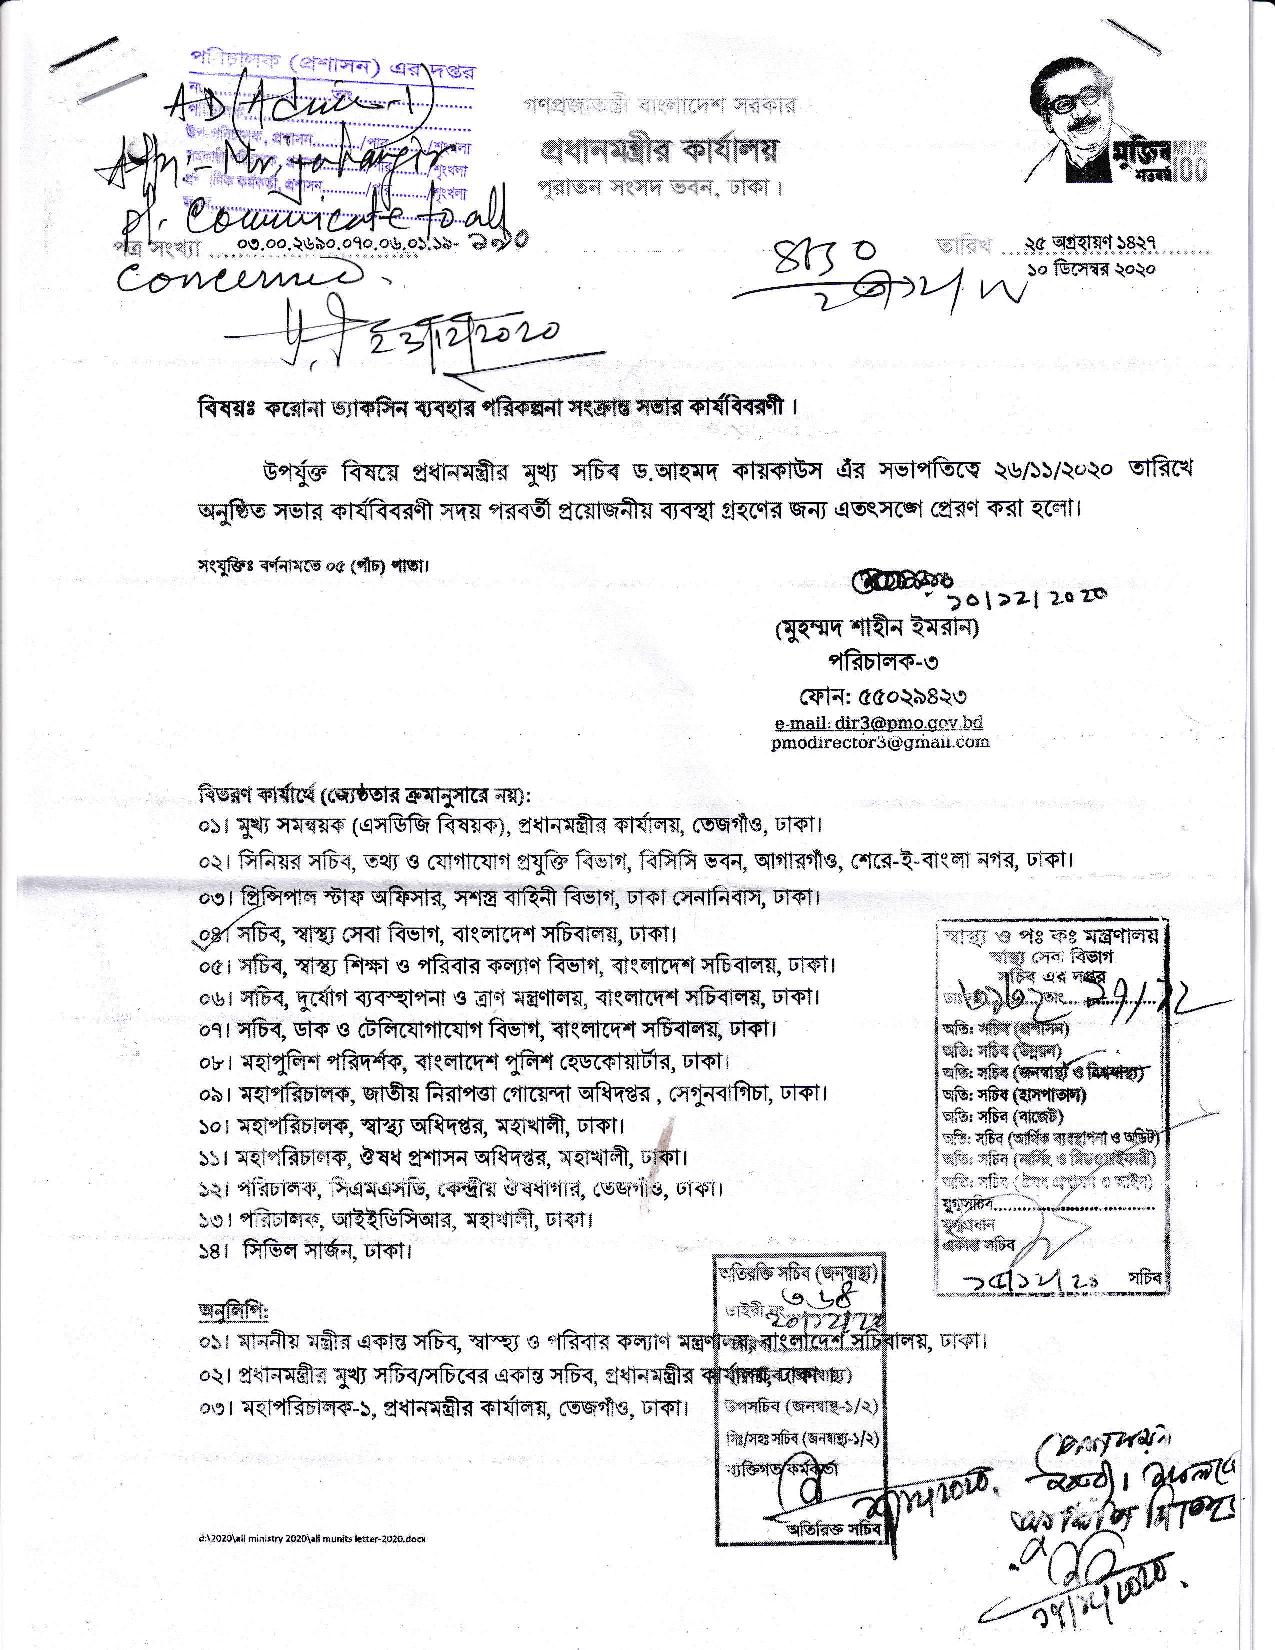 পরিচালক (প্রশাসন) এর দপ্তর
AD (Admin-1)
pl. Communicate to all
concerned.
23/12/2020
গণপ্রজাতন্ত্রী বাংলাদেশ সরকার
প্রধানমন্ত্রীর কার্যালয়
পুরাতন সংসদ ভবন, ঢাকা।
মুজিব
শতবর্ষ 100
পত্র সংখ্যা ০৩.০০.২৬৯০.০৭০.০৬.০১.১৯-
তারিখ ২৫ অগ্রহায়ণ ১৪২৭
১০ ডিসেম্বর ২০২০
বিষয়ঃ করোনা ভ্যাকসিন ব্যবহার পরিকল্পনা সংক্রান্ত সভার কার্যবিবরণী।
উপর্যুক্ত বিষয়ে প্রধানমন্ত্রীর মুখ্য সচিব ড.আহমদ কায়কাউস এঁর সভাপতিত্বে ২৬/১১/২০২০ তারিখে
অনুষ্ঠিত সভার কার্যবিবরণী সদয় পরবর্তী প্রয়োজনীয় ব্যবস্থা গ্রহণের জন্য এতৎসঙ্গে প্রেরণ করা হলো।
সংযুক্তিঃ বর্ণনামতে ০৫ (পাঁচ) পাতা।
১০/১২/২০২০
(মুহম্মদ শাহীন ইমরান)
পরিচালক-৩
ফোন: ৫৫০২৯৪২৩
e-mail: dir3@pmo.gov.bd
pmodirector3@gmail.com
বিতরণ কার্যার্থে (জ্যেষ্ঠতার ক্রমানুসারে নয়):
০১। মুখ্য সমন্বয়ক (এসডিজি বিষয়ক), প্রধানমন্ত্রীর কার্যালয়, তেজগাঁও, ঢাকা।
০২। সিনিয়র সচিব, তথ্য ও যোগাযোগ প্রযুক্তি বিভাগ, বিসিসি ভবন, আগারগাঁও, শেরে-ই-বাংলা নগর, ঢাকা।
০৩। প্রিন্সিপাল স্টাফ অফিসার, সশস্ত্র বাহিনী বিভাগ, ঢাকা সেনানিবাস, ঢাকা।
০৪। সচিব, স্বাস্থ্য সেবা বিভাগ, বাংলাদেশ সচিবালয়, ঢাকা।
০৫। সচিব, স্বাস্থ্য শিক্ষা ও পরিবার কল্যাণ বিভাগ, বাংলাদেশ সচিবালয়, ঢাকা।
০৬। সচিব, দুর্যোগ ব্যবস্থাপনা ও ত্রাণ মন্ত্রণালয়, বাংলাদেশ সচিবালয়, ঢাকা।
০৭। সচিব, ডাক ও টেলিযোগাযোগ বিভাগ, বাংলাদেশ সচিবালয়, ঢাকা।
০৮। মহাপুলিশ পরিদর্শক, বাংলাদেশ পুলিশ হেডকোয়ার্টার, ঢাকা।
০৯। মহাপরিচালক, জাতীয় নিরাপত্তা গোয়েন্দা অধিদপ্তর , সেগুনবাগিচা, ঢাকা।
১০। মহাপরিচালক, স্বাস্থ্য অধিদপ্তর, মহাখালী, ঢাকা।
১১। মহাপরিচালক, ঔষধ প্রশাসন অধিদপ্তর, মহাখালী, ঢাকা।
১২। পরিচালক, সিএমএসডি, কেন্দ্রীয় ঔষধাগার, তেজগাঁও, ঢাকা।
১৩। পরিচালক, আইইডিসিআর, মহাখালী, ঢাকা।
১৪। সিভিল সার্জন, ঢাকা।
স্বাস্থ্য ও পঃ কঃ মন্ত্রণালয়
স্বাস্থ্য সেবা বিভাগ
সচিব এর দপ্তর
অতি: সচিব (প্রশাসন)
অতি: সচিব (উন্নয়ন)
অতি: সচিব (জনস্বাস্থ্য ও বিশ্বস্বাস্থ্য)
অতি: সচিব (হাসপাতাল)
অতি: সচিব (বাজেট)
অতি: সচিব (আর্থিক ব্যবস্থাপনা ও অডিট)
অতি: সচিব (নার্সিং ও মিডওয়াইফারী)
অতি: সচিব (ঔষধ প্রশাসন ও আইন)
যুগ্মসচিব
যুগ্মপ্রধান
একান্ত সচিব
সচিব
অতিরিক্ত সচিব (জনস্বাস্থ্য)
ডাইরী নং
উপসচিব (জনস্বাস্থ্য-১/২)
সিঃ/সহঃ সচিব (জনস্বাস্থ্য-১/২)
ব্যক্তিগত কর্মকর্তা
অতিরিক্ত সচিব
অনুলিপি:
০১। মাননীয় মন্ত্রীর একান্ত সচিব, স্বাস্থ্য ও পরিবার কল্যাণ মন্ত্রণালয়, বাংলাদেশ সচিবালয়, ঢাকা।
০২। প্রধানমন্ত্রীর মুখ্য সচিব/সচিবের একান্ত সচিব, প্রধানমন্ত্রীর কার্যালয়, ঢাকা।
০৩। মহাপরিচালক-১, প্রধানমন্ত্রীর কার্যালয়, তেজগাঁও, ঢাকা।
d:\2020\all ministry 2020\all munits letter-2020.docx